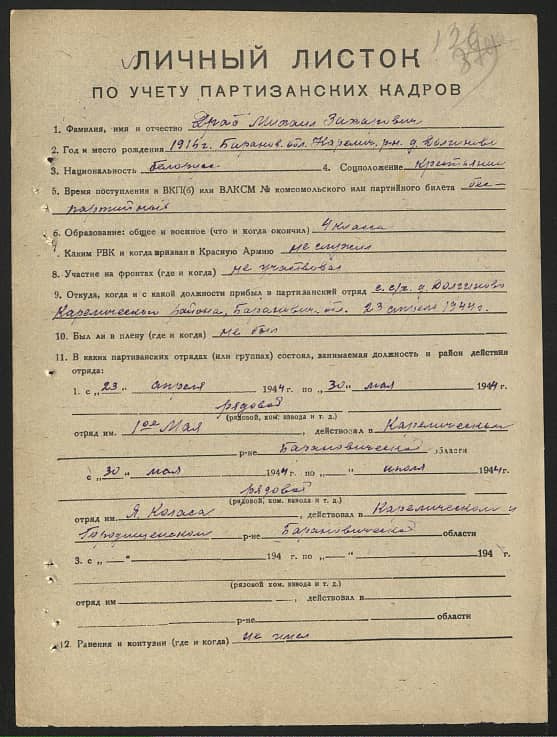 ЛИЧНЫЙ ЛИСТОК
ПО УЧЕТУ ПАРТИЗАНСКИХ КАДРОВ
1. Фамилия, имя и отчество Драб Михаил Захарович
2. Год и место рождения 1915г. Баранов. обл. Карелич. р-н. д. Долгиново
3. Национальность белорус 4. Соцположение Крестьянин
5. Время поступления в ВКП(б) или ВЛКСМ № комсомольского или партийного билета бес-
партийный
6. Образование: общее и военное (что и когда окончил) 4 класса
7. Каким РВК и когда призван в Красную Армию не служил
8. Участие на фронтах (где и когда) не участвовал
9. Откуда, когда и с какой должности прибыл в партизанский отряд с. с/х. д. Долгиново
Карелического района, Баранович. обл. 23 апреля 1944г.
10. Был ли в плену (где и когда) не был
11. В каких партизанских отрядах (или группах) состоял, занимаемая должность и район действия
отряда:
1. с „23" апреля 1944 г. по „30" мая 1944 г.
рядовой
(рядовой, ком. взвода и т. д.)
отряд им. 1ое Мая, действовал в Карелическом
р-не Барановической области
с „30" мая 1944 г. по „ " июля 1944 г.
рядовой
(рядовой, ком. взвода и т. д.)
отряд им. Я. Коласа, действовал в Карелическом и
Городищенском р-не Барановической области
3. с „ " 194 г. по „ " 194 г.
(рядовой ком. взвода и т. д.)
отряд им , действовал в
р-не области
12. Ранения и контузии (где и когда) не имел